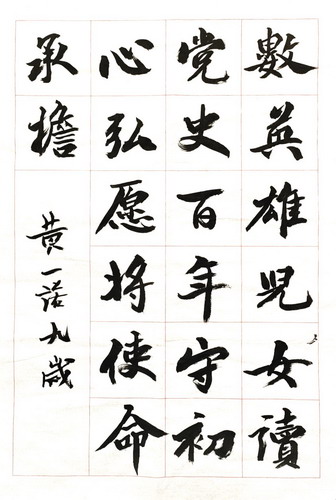 數英雄児女讀
党史百年守初
心弘愿将使命
承擔
黄一諾九歲